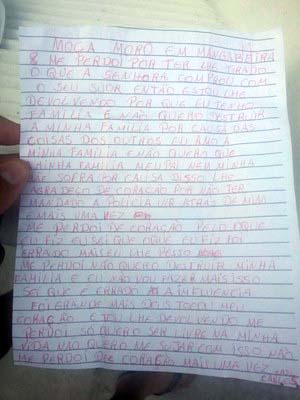 MOÇA MORO EM MANGABEIRA
8 ME PERDOI POR TER LHE TIRADO
O QUE A SENHORA COMPROU COM
O SEU SUOR ENTÃO ESTOU LHE
DEVOLVENDO POR QUE EU TENHO
FAMILIA E NÃO QUERO DESTRUIR
A MINHA FAMILIA POR CAUSA DAS
COISAS DOS OUTROS EU AMO A
MINHA FAMILIA E NÃO QUERO QUE
MINHA FAMILIA NEM PAI NEM MINHA
ME SOFRA POR CAUSA DISSO LHE
AGRADEÇO DE CORAÇÃO POR NÃO TER
MANDADO A POLICIA VIR ATRÁS DE MIM
E MAIS UMA VEZ
ME PERDOI DE CORAÇÃO PELO QUE
EU FIZ EU SEI QUE O QUE EU FIZ FOI
ERRADO MAIS EU LHE PESSO
ME PERDUI NÃO QUERO DESTRUIR MINHA
FAMILIA E EU NÃO VOU FAZER MAIS ISSO
SEI QUE E ERRADO A
FOI GRANDE MAIS DO STOQUE MEU
CORAÇÃO ESTOU LHE DEVOLVENDO ME
PERDOI SO QUERO SER LIVRE NA MINHA
VIDA NÃO QUERO ME SUJAR COM ISSO NÃO
ME PERDOI DE CORAÇÃO MAIS UMA VEZ